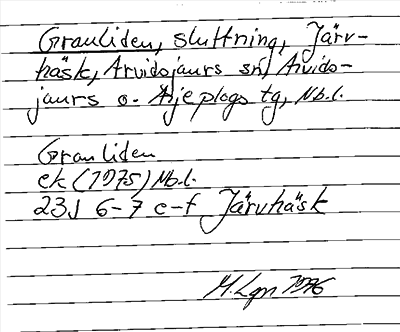 Granliden, sluttning, Järv-
häsk, Arvidsjaurs sn, Arvids-
jaurs o. Arjeplogs tg, Nb.l.
Granliden
ek (1975) Nb.l.
23J 6-7 e-f Järvhäsk
M. Lgn 1976